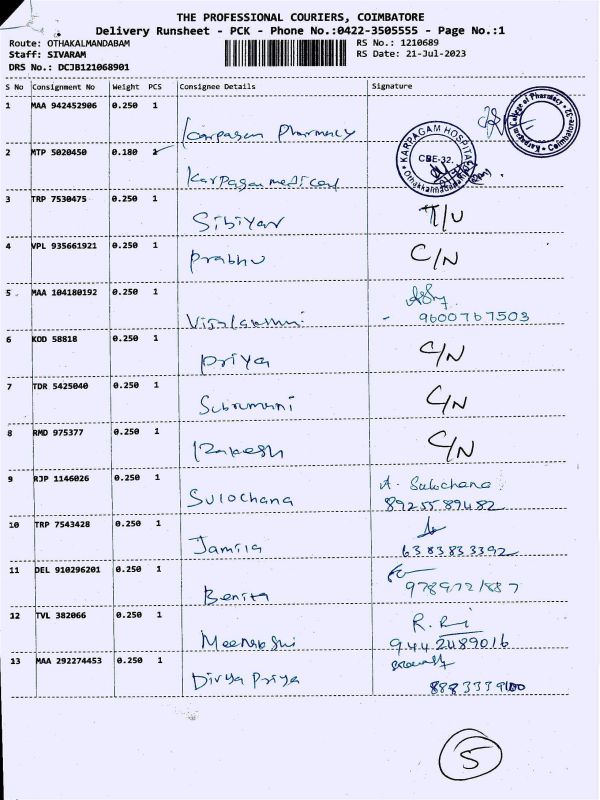 THE PROFESSIONAL COURIERS, COIMBATORE
Delivery Runsheet - PCK - Phone No.:0422-3505555 - Page No.:1
Route: OTHAKALMANDABAM RS No.: 1210689
Staff: SIVARAM RS Date: 21-Jul-2023
DRS No.: DCJB121068901
S No Consignment No Weight PCS Consignee Details Signature
1 MAA 942452906 0.250 1 Karpagam Pharmacy
College of Pharmacy Coimbatore-32
2 MTP 5020450 0.180 Karpagam medical
KARPAGAM HOSPITAL CBE-32.
3 TRP 7530475 0.250 1 T/U
4 VPL 935661921 0.250 1 Prabhu C/N
5 MAA 104180192 0.250 1 9600767503
6 KOD 58818 0.250 1 Priya C/N
7 TDR 5425040 0.250 1 Subramani C/N
8 RMD 975377 0.250 1 Rakesh C/N
9 RJP 1146026 0.250 1 Sulochana A. Sulochana
8925589482
10 TRP 7543428 0.250 1 Jamila
6383833392
11 DEL 910296201 0.250 1 Benita
12 TVL 382066 0.250 1 Meenakshi
9442489016
13 MAA 292274453 0.250 1 Divya Priya
5